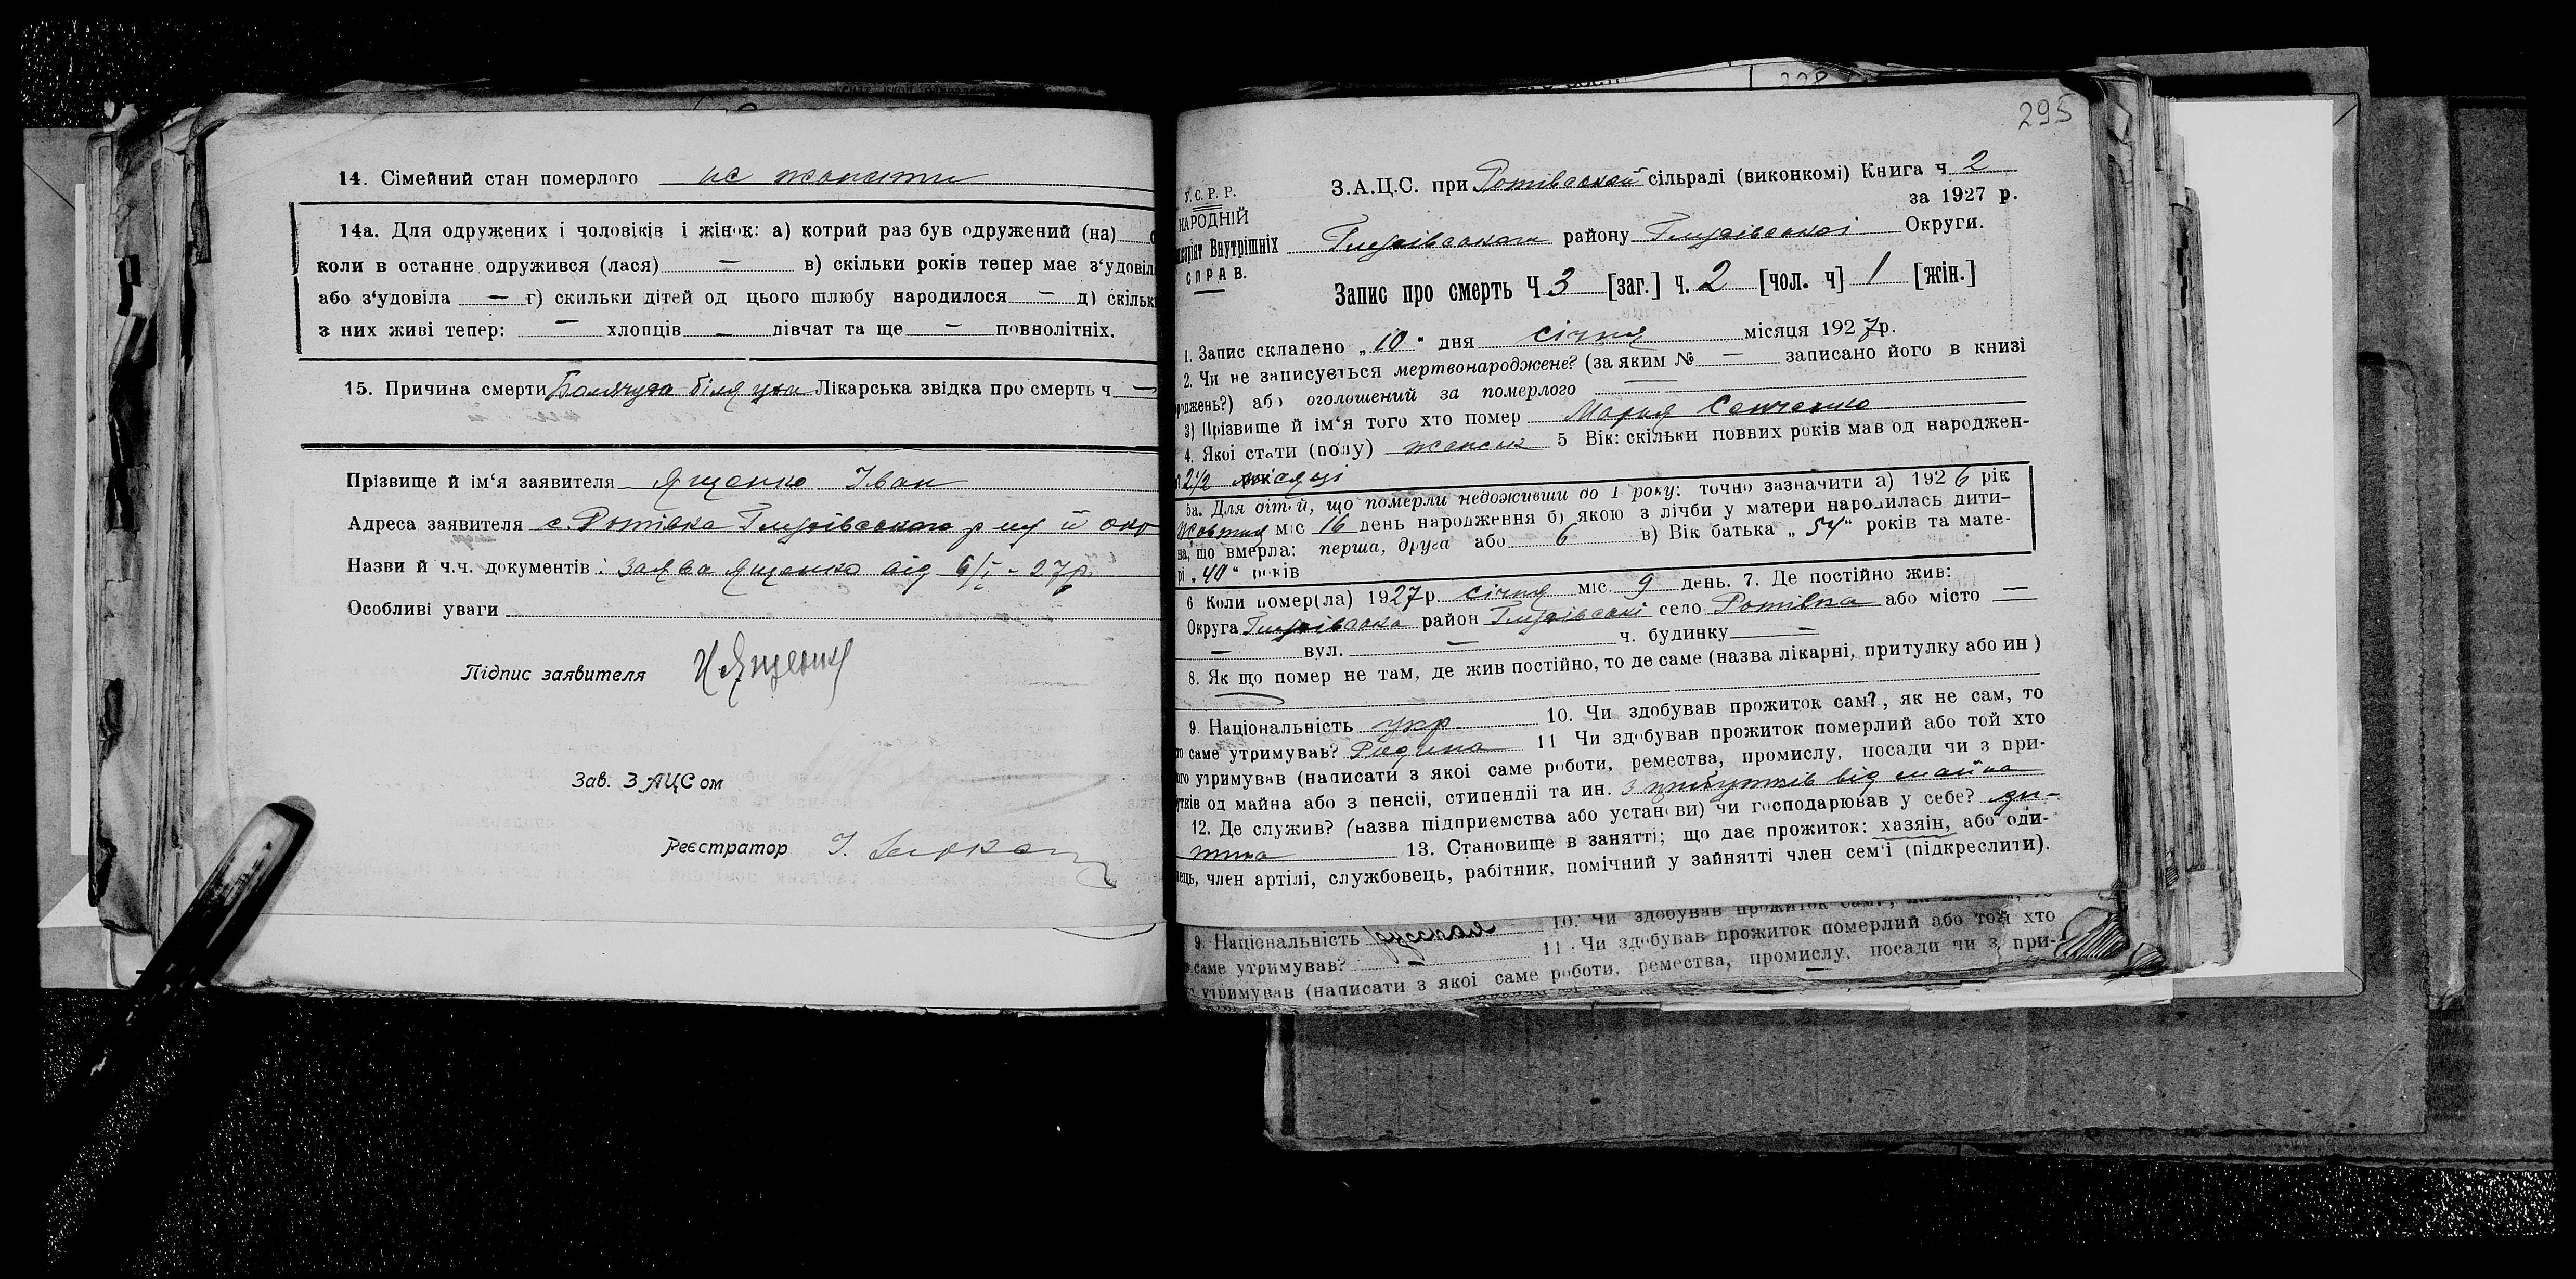 14. Сімейний стан померлого не жонати
14а. Для одружених і чоловіків і жінок: а) котрий раз був одружений (на)
коли в останне одружився (лася) — в) скільки років тепер має з‘удовіл
або з‘удовіла — г) скильки дітей од цього шлюбу народилося — д) скільк
з них живі тепер: — хлопців — дівчат та ще — повнолітніх.
15. Причина смерти біля уха Лікарська звідка про смерть ч —
Прізвище й ім‘я заявителя Ященко Іван
Адреса заявителя с. Ротівка Глухівського р-ну й окр
Назви й ч.ч. документів: Заява Ященка від 6/I - 27р.
Особливі уваги
Підпис заявителя И Ященко
Зав. ЗАЦСом
Реєстратор І.
295
У.С.Р.Р.
НАРОДНІЙ
Внутрішніх
СПРАВ.
З.А.Ц.С. при Ротівській сільраді (виконкомі) Книга ч 2
за 1927 р.
Глухівського району Глухівської Округи.
Запис про смерть Ч 3 [заг.] ч. 2 [чол. ч] 1 [жін.]
1. Запис складено „10“ дня січня місяця 1927р.
2. Чи не записується мертвонароджене? (за яким № — записано його в книзі
роджень?) або оголошений за померлого —
3) Прізвище й ім‘я того хто помер Мария Савченко
4. Якої стати (полу) женськ 5 Вік: скільки повних років мав од народжен-
2 1/2 місяці
5а. Для дітей, що померли недоживши до 1 року: точно зазначити а) 1926 рік
Жовтня міс 16 день народження б) якою з лічби у матери народилась дити-
на, що вмерла: перша, друга або 6 в) Вік батька „54“ років та мате-
рі „40“ років
6 Коли помер(ла) 1927р. січня міс. 9 день. 7. Де постійно жив:
Округа Глухівська район Глухівські село Ротівка або місто —
— вул. — ч. будинку —
8. Як що помер не там, де жив постійно, то де саме (назва лікарні, притулку або ин)
9. Національність укр. 10. Чи здобував прожиток сам?, як не сам, то
то саме утримував? Родина 11 Чи здобував прожиток померлий або той хто
ого утримував (написати з якої саме роботи, ремества, промислу, посади чи з при-
утків од майна або з пенсії, стипендії та ин. З прибутків від майна
12. Де служив? (назва підприємства або установи) чи господарював у себе? ди-
тина 13. Становище в занятті; що дає прожиток: хазяін, або оди-
нець, член артілі, службовець, рабітник, помічний у зайнятті член сем‘ї (підкреслити).
9. Національність русская 10. Чи здобував прожиток сам?,
саме утримував? — 11. Чи здобував прожиток померлий або той хто
утримував (написати з якої саме роботи, ремества, промислу, посади чи з при-